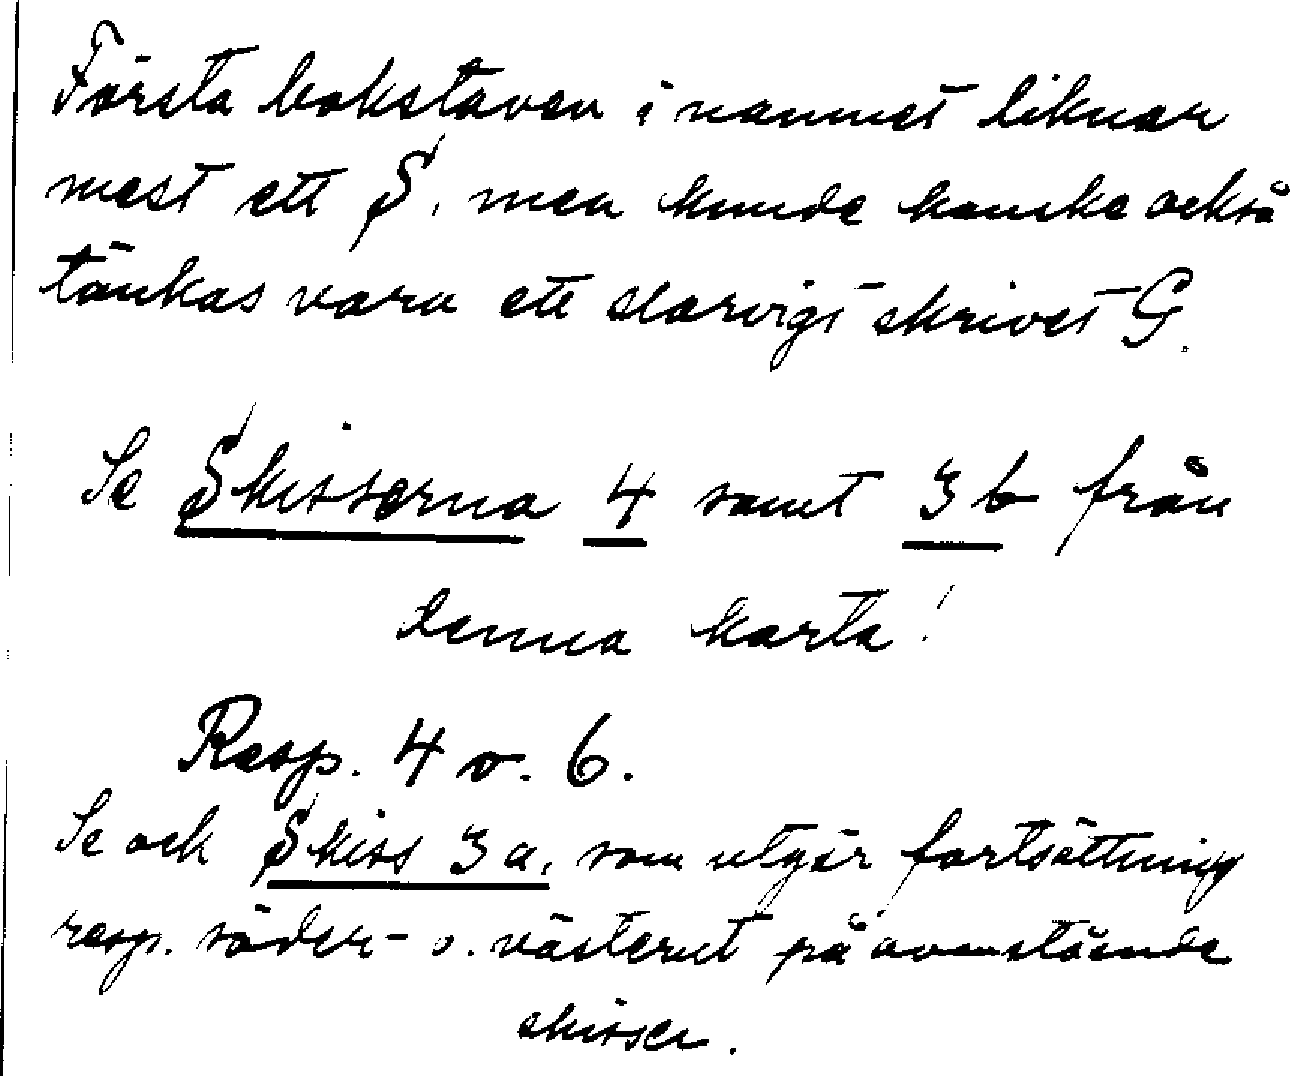 Första bokstaven i namnet liknar
mest ett S, men kunde kanske också
tänkas vara ett slarvigt skrivet G.
Se Skisserna 4 samt 3b från
denna karta!
Resp. 4 o. 6.
Se ock Skiss 3a, som utgör fortsättning
resp. söder- o. västerut på ovanstående
skisser.